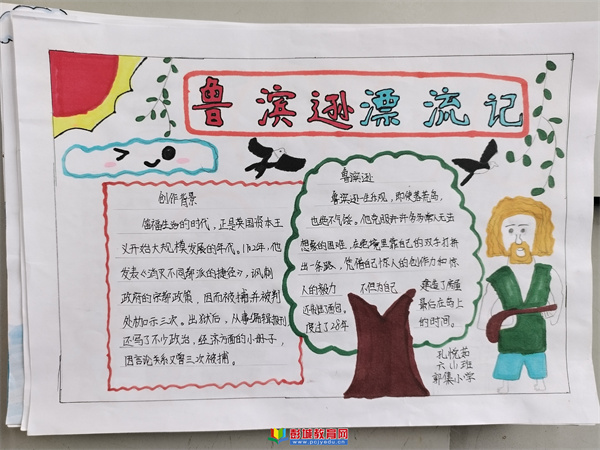 鲁滨逊漂流记
创作背景
笛福生活的时代，正是英国资本主
义开始大规模发展的年代。1702年，他
发表《消灭不同教派的捷径》，讽刺
政府的宗教政策，因而被捕并被判
处枷示三次。出狱后，从事编辑报刊，
还写了不少政治，经济方面的小册子，
因言论关系又曾三次被捕。
鲁滨逊
鲁滨逊一生乐观，即使受苦难，
也绝不气馁。他克服许许多多常人无法
想象的困难，在绝境里靠自己的双手打拼
出一条路，凭借自己惊人的创作力和惊
人的毅力 不但为自己 建造了房屋
还做出了面包。 最后在岛上
度过了28年 的时间。
孔悦茹
六(1)班
郭集小学
彭城教育网
www.pcjyedu.cn